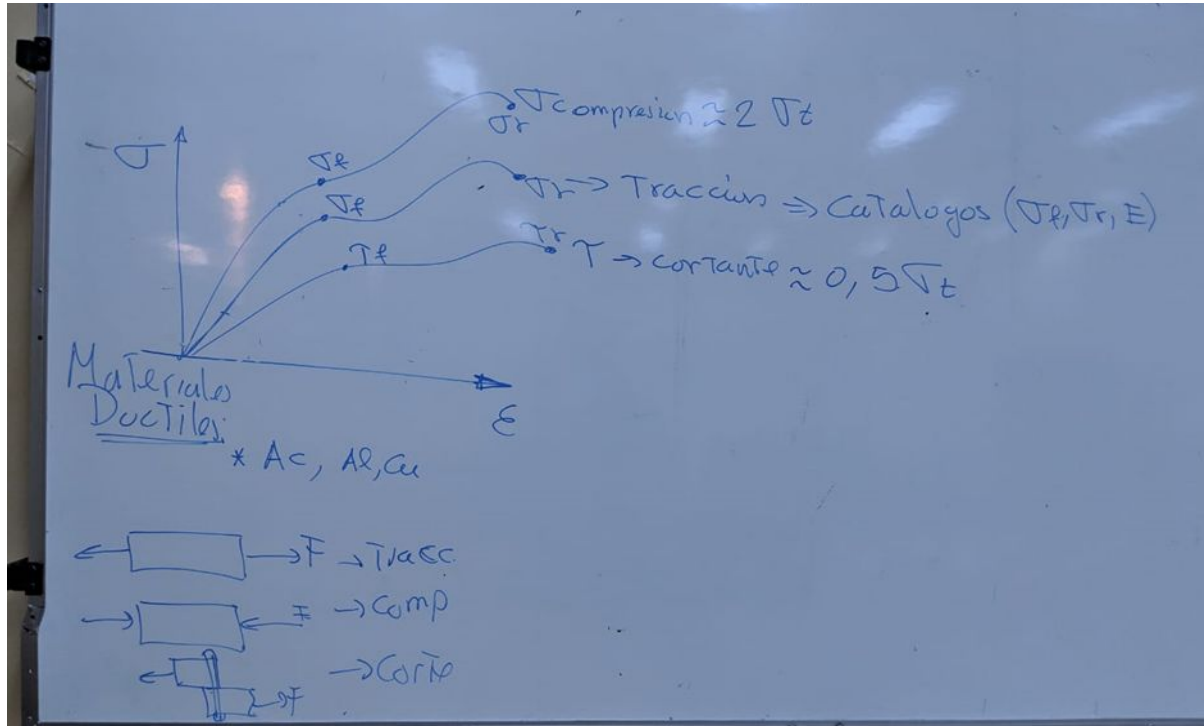 σcompresion ≈ 2 σt
σr
σ
σf
σf
σr → Tracción ⇒ Catalogos (σf, σr, E)
τf
τr
τ → cortante ≈ 0,5 σt
Materiales
Ductiles
ε
* Ac, Al, Cu
F → Tracc
F → Comp
F → Corte